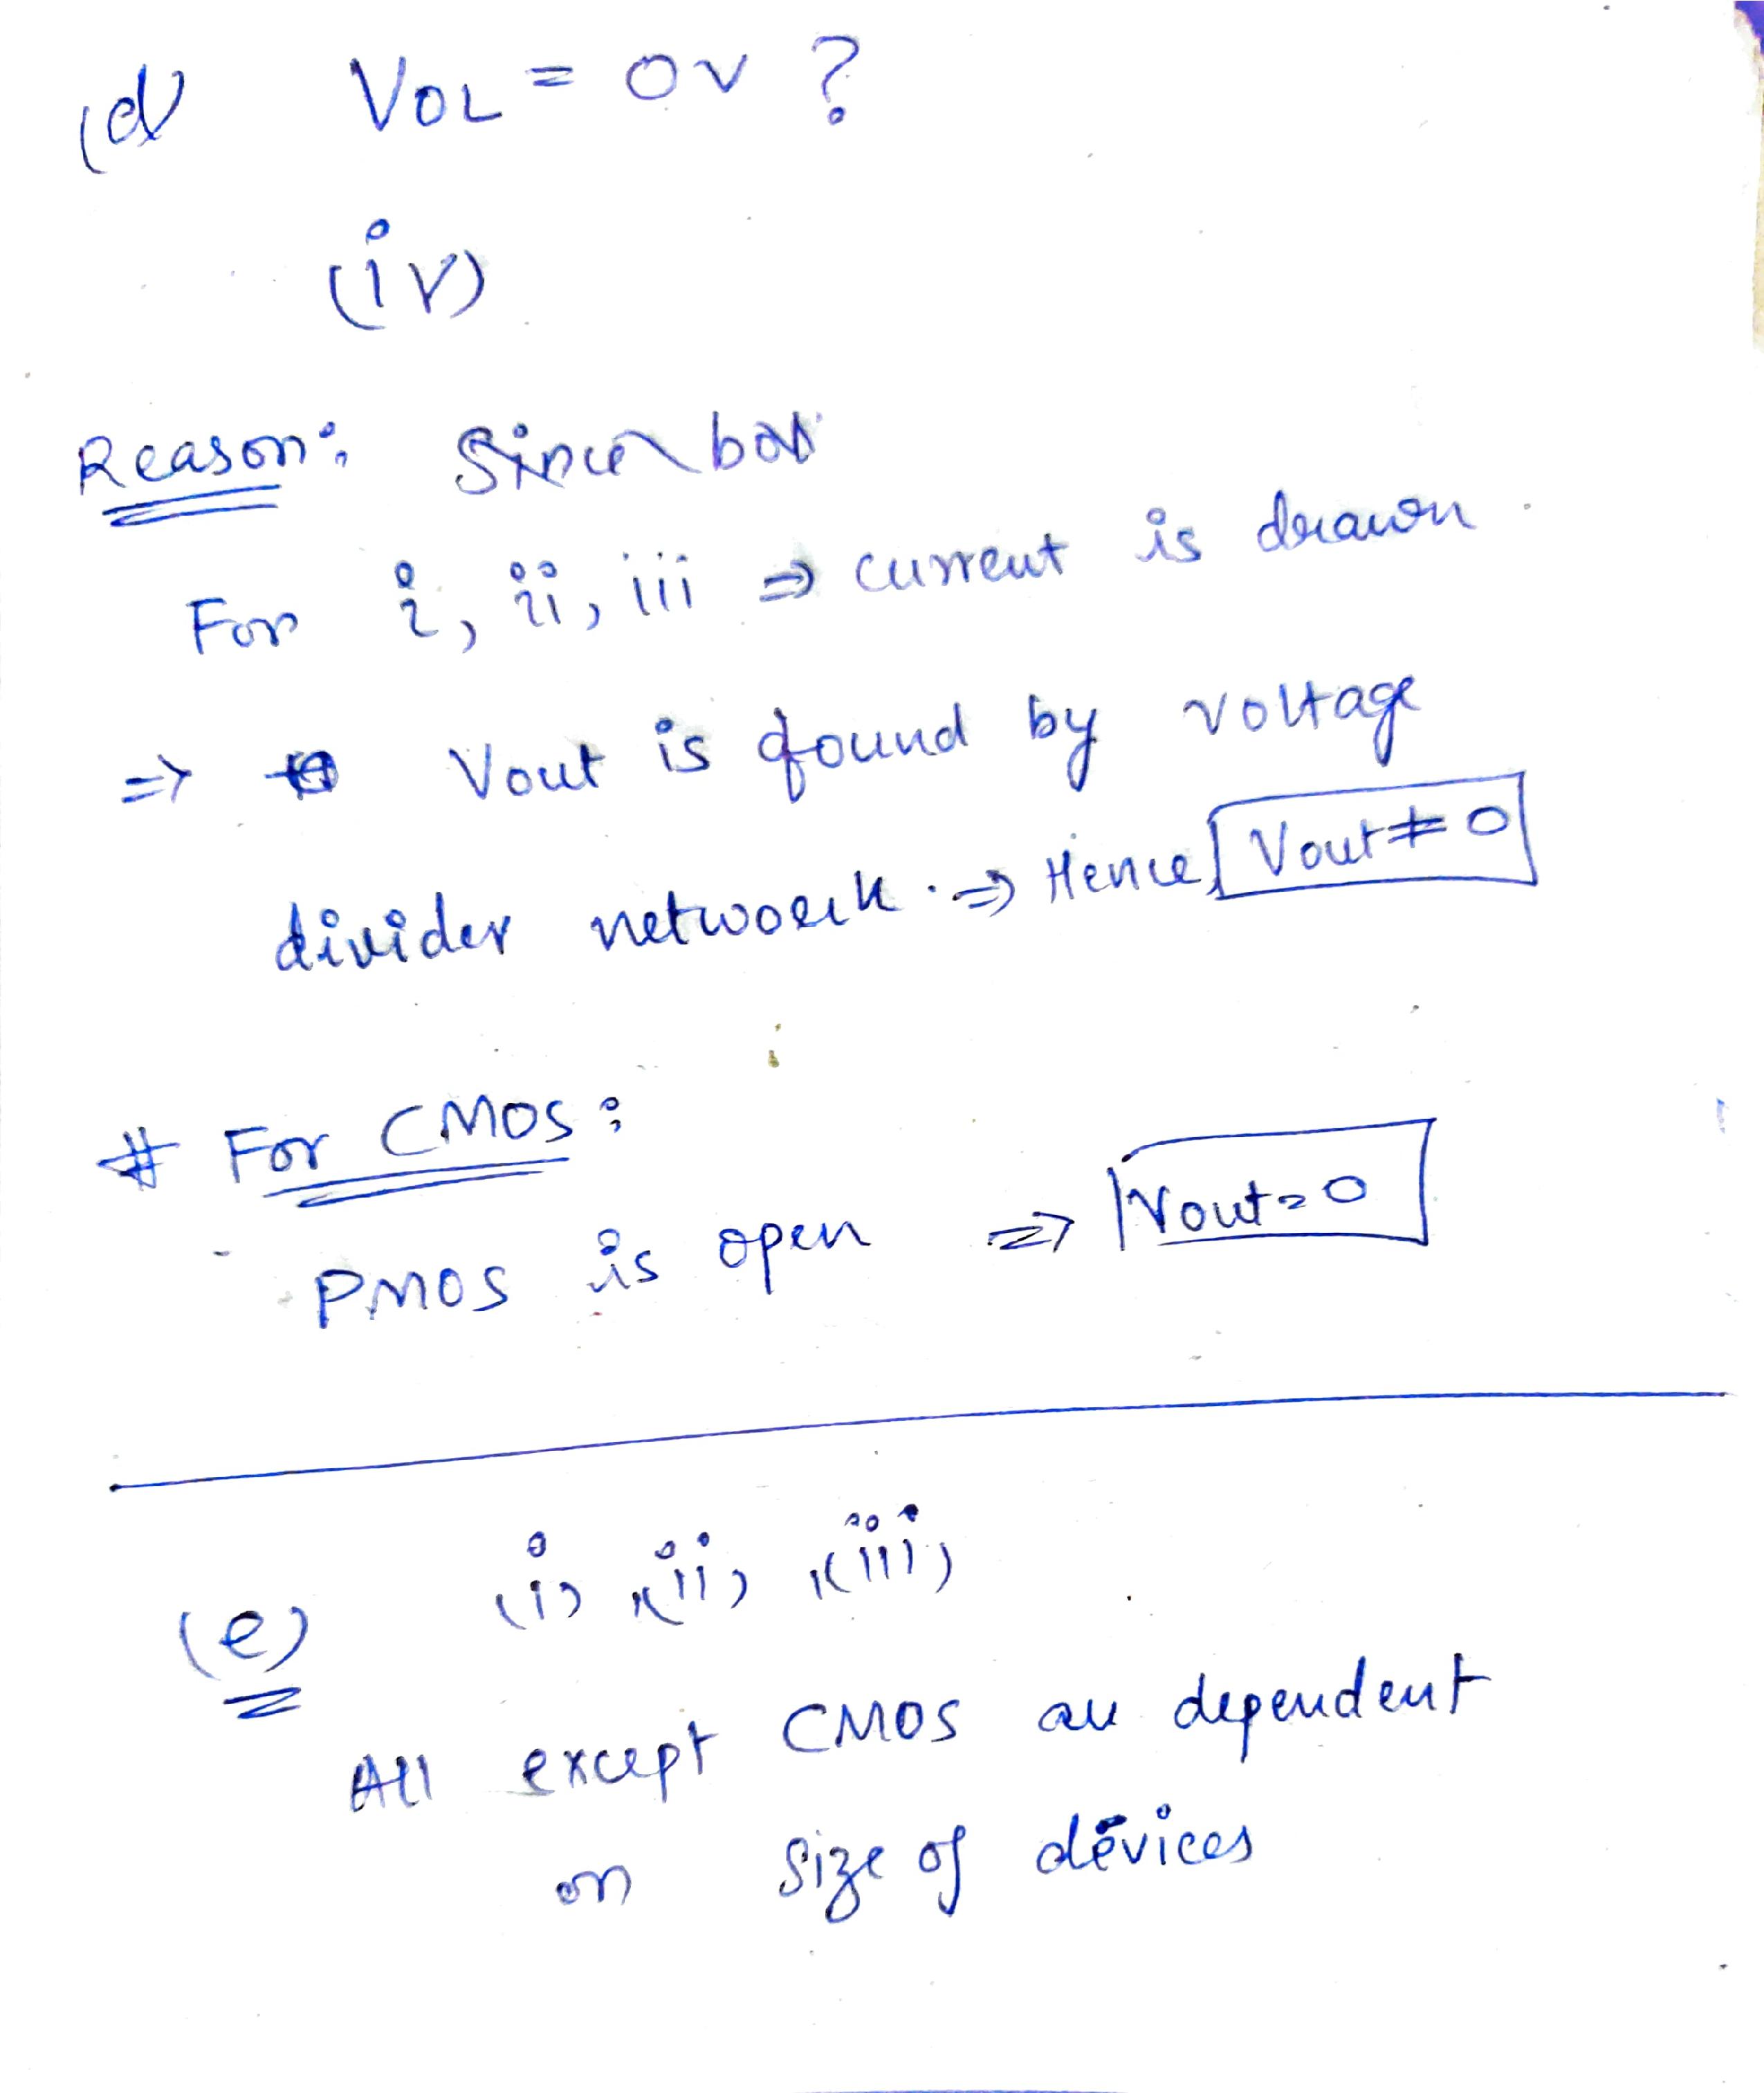 (d) VOL = 0V ?
(iv)
Reason:
For i, ii, iii ⇒ current is drawn.
⇒ Vout is found by voltage
divider network. ⇒ Hence, Vout ≠ 0
# For CMOS:
PMOS is open ⇒ Vout = 0
(e) (i), (ii), (iii)
All except CMOS are dependent
on size of devices